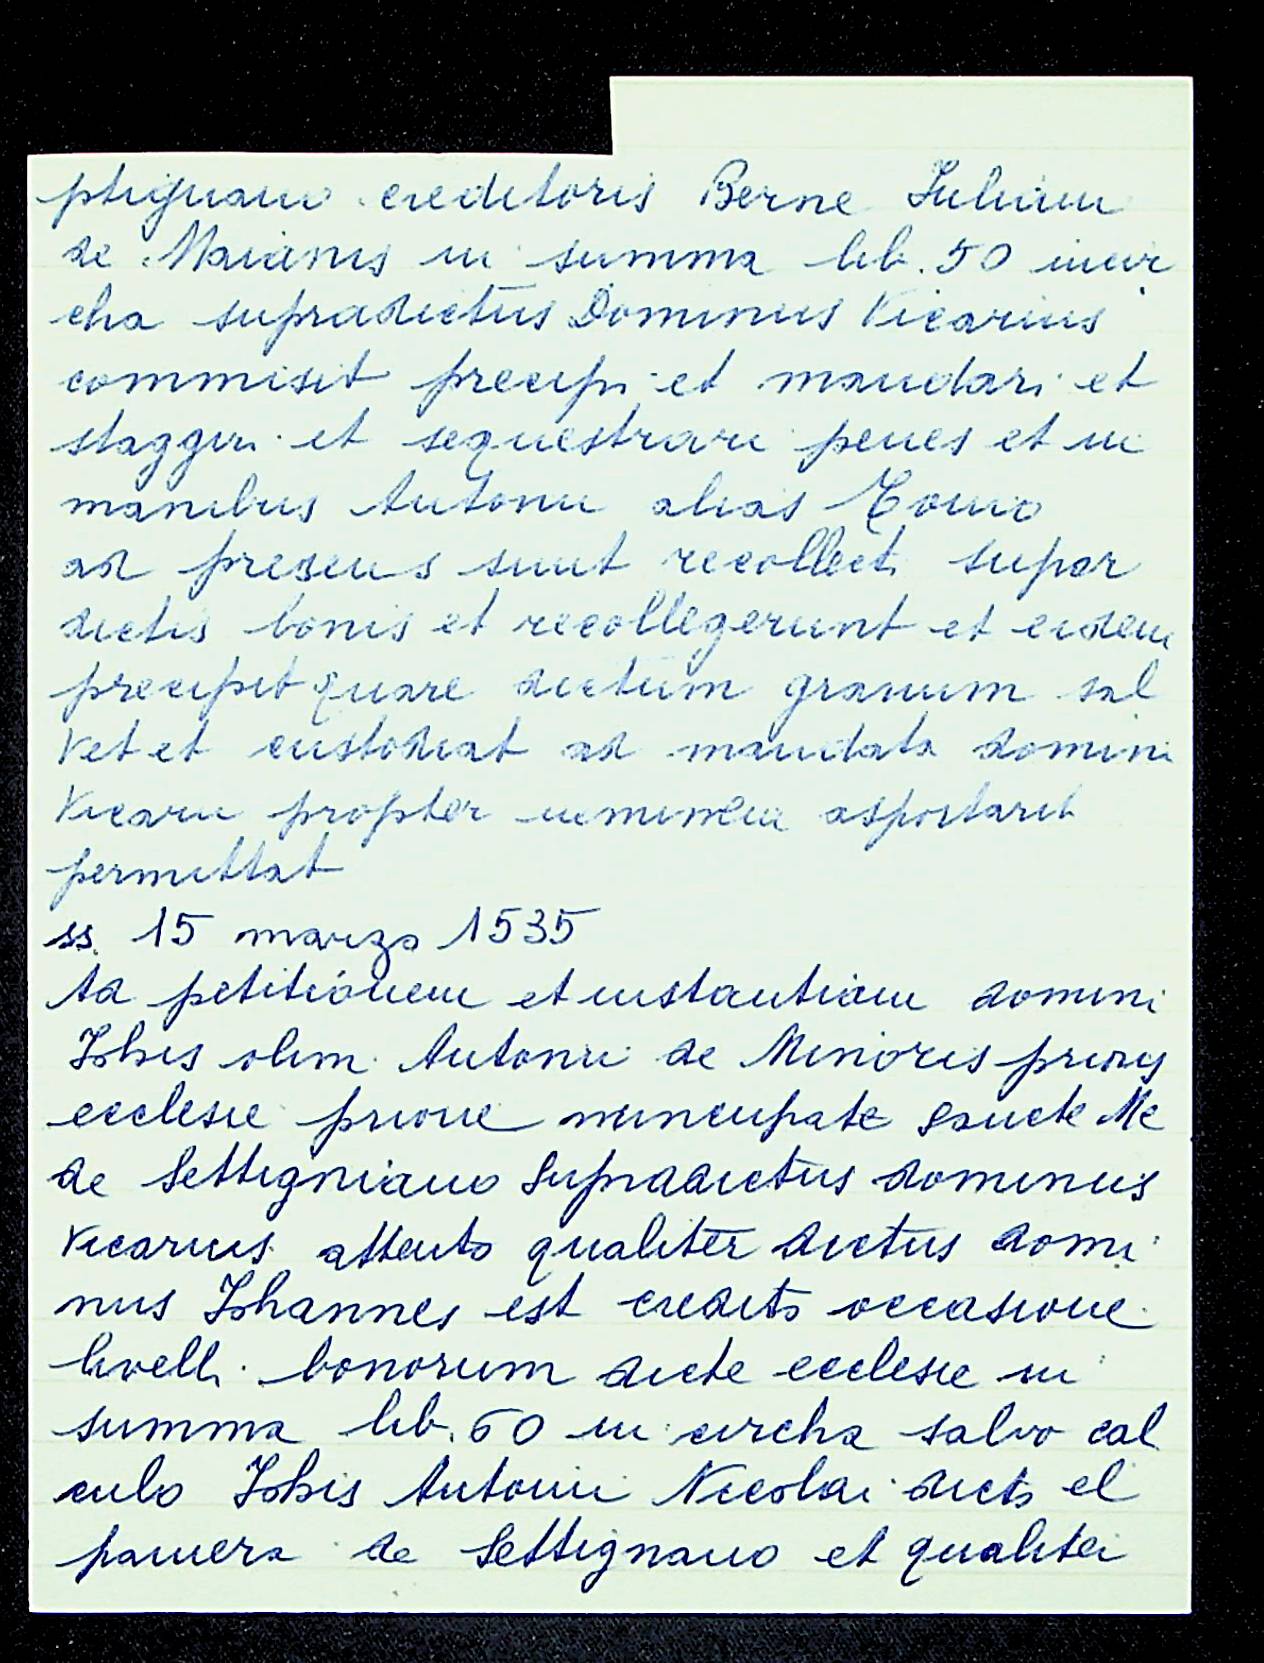 ptignano creditoris Berne Juliani
de Maianis in summa lib. 50 incir
cha supradictus Dominus Vicarius
commisit precipi et mandari et
staggiri et sequestrari penes et in
manibus Antonii alias Tonio
ad presens sunt recollecti super
dictis bonis et recollegerunt et eidem
precipit quare dictum granum sal
vet et custodiat ad mandata domini
Vicarii propter neminem asportarit
permittat
ss. 15 marzo 1535
Ad petitionem et instantiam domini
Johis olim Antonii de Minoris prioris
ecclesie priorie nuncupate Sancte Me
de Settigniano Supradictus dominus
Vicarius attento qualiter dictus domi
nus Johannes est credito occasione
livelli bonorum dicte ecclesie in
summa lib. 60 in circha salvo cal
culo Johis Antonii Nicolai dicto el
pamera de Settignano et qualiter